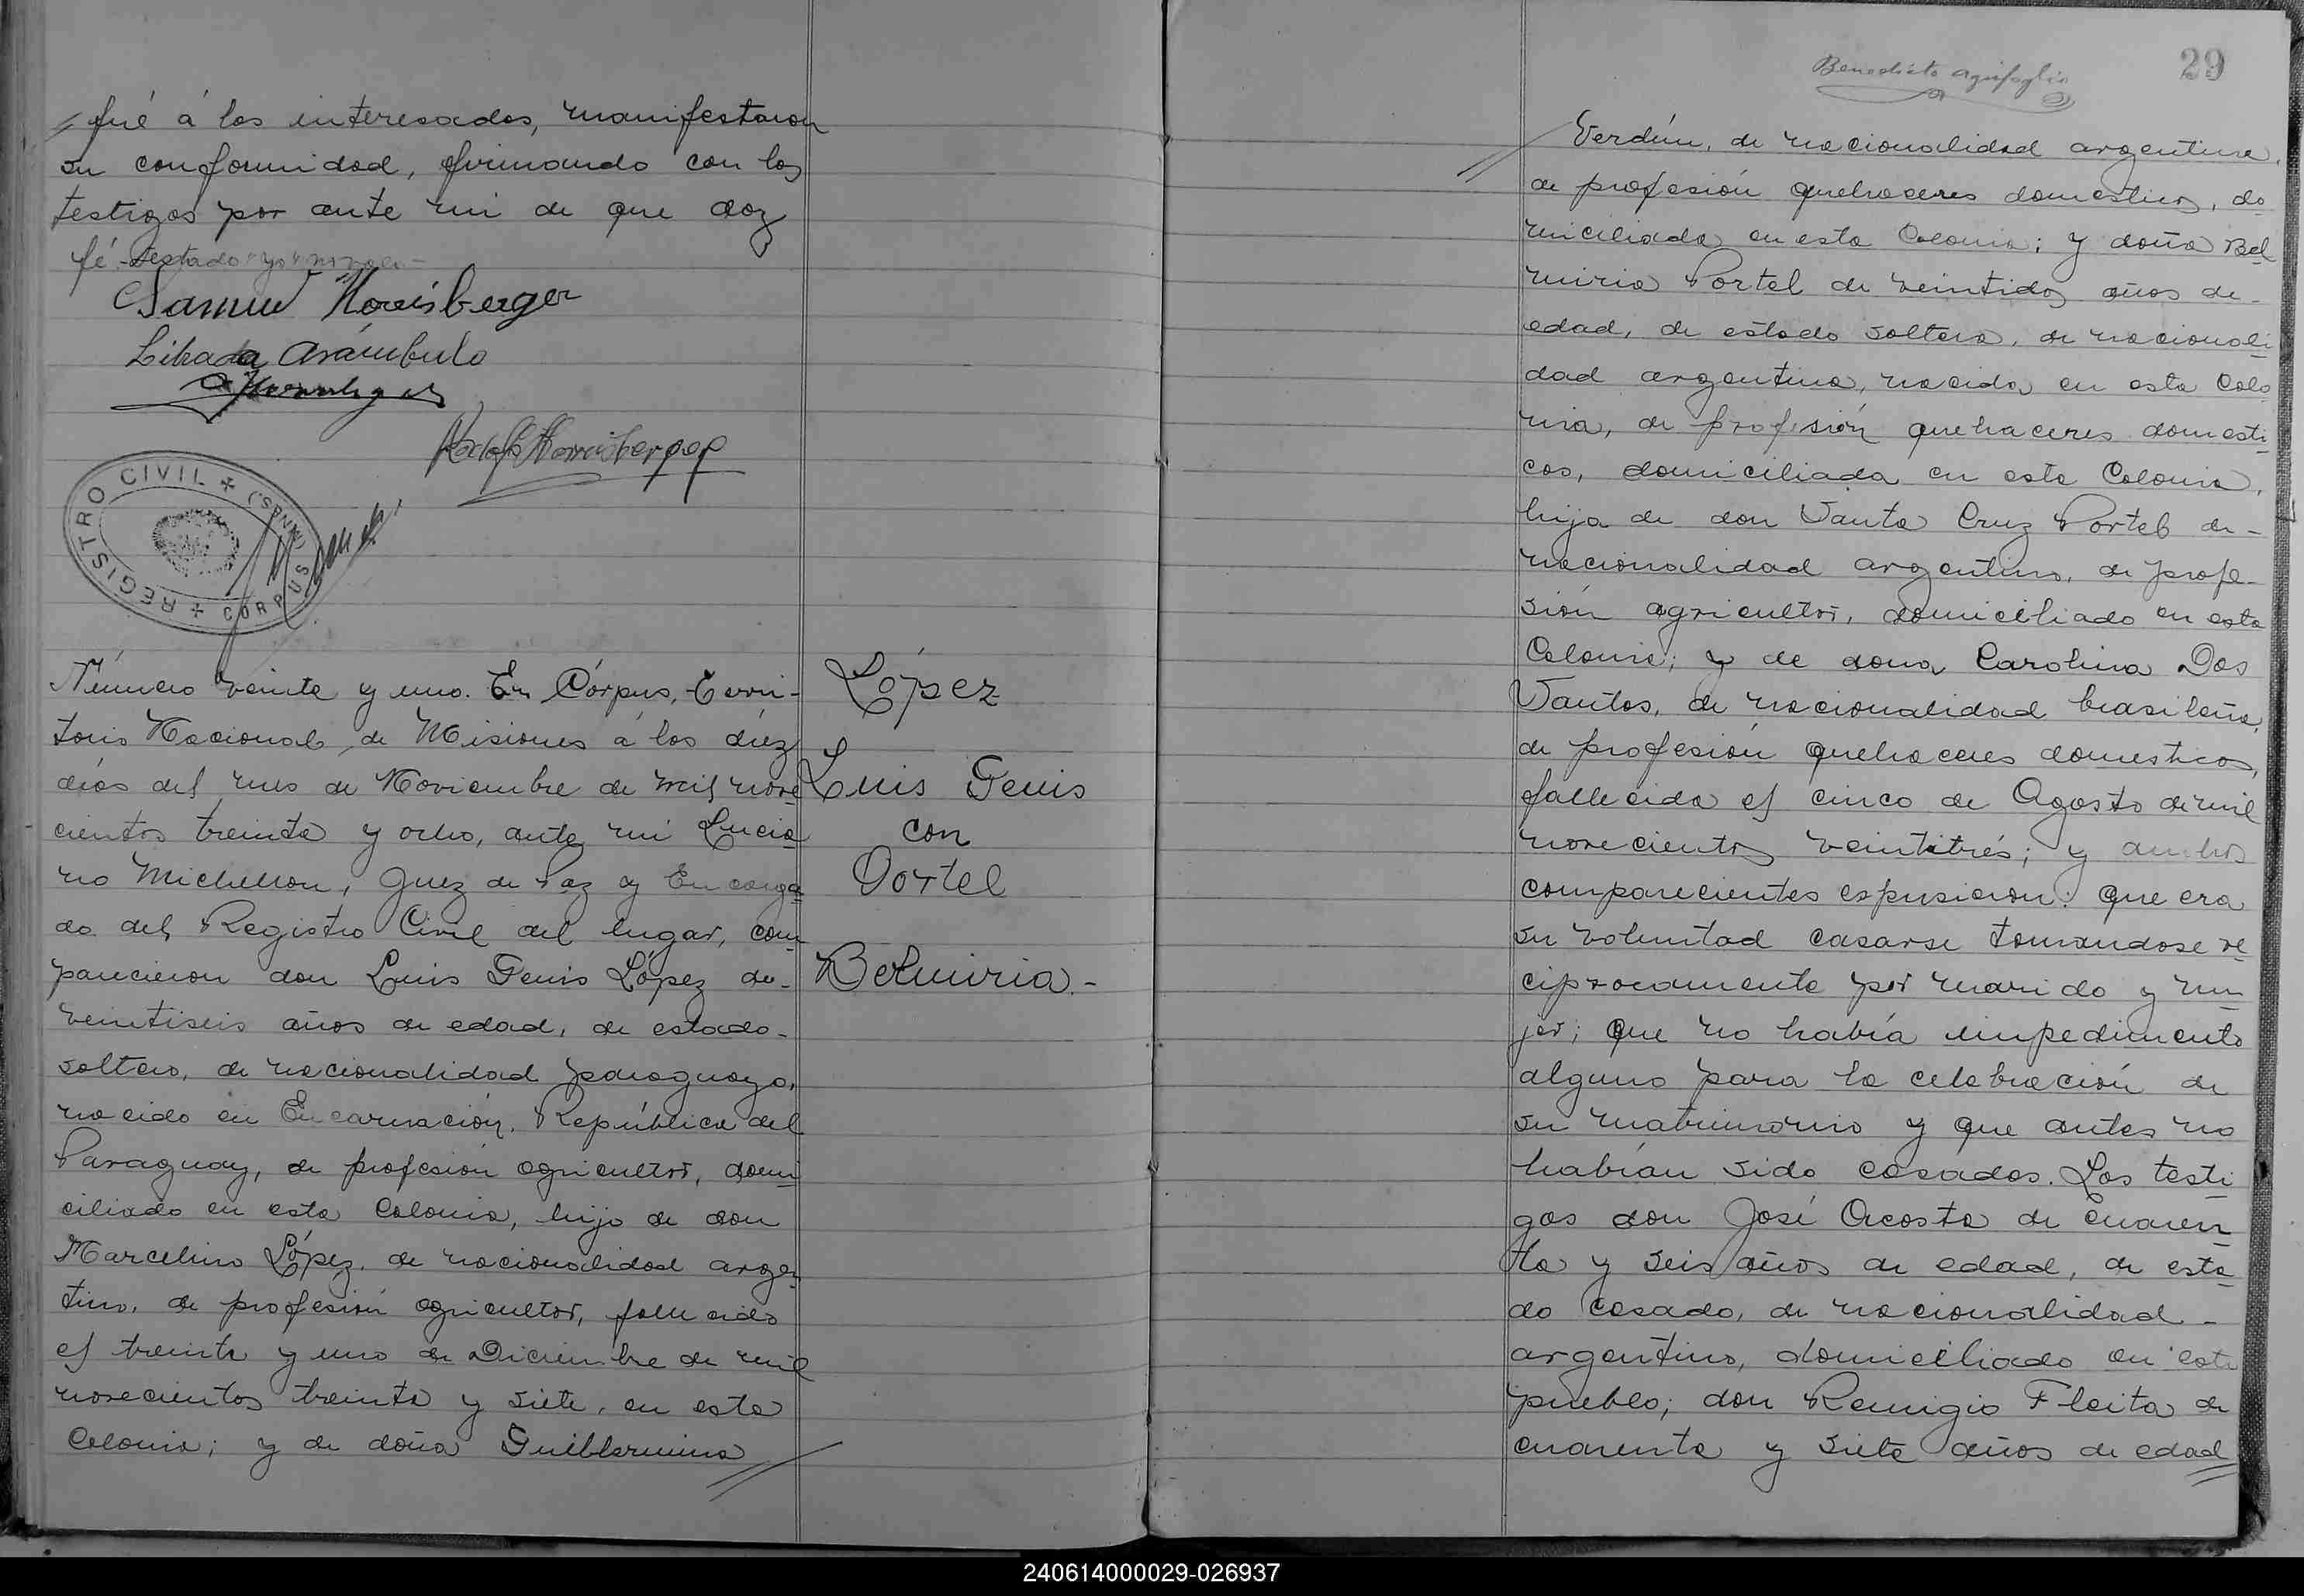 fué á los interesados, manifestaron
su conformidad, firmando con los
testigos por ante mi de que doy
fé.-Testado "yo" no vale.-
Samuel Hornisberger
Librada Arámbulo
Adolfo Hornisberger
REGISTRO CIVIL
CORPUS (MISIONES)
Número veinte y uno. En Córpus, Terri-
torio Nacional de Misiones á los diéz
días del mes de Noviembre de mil nove
cientos treinta y ocho, ante mi Lucia
no Michellon, Juez de Paz y Encarga
do del Registro Civil del lugar, com
parecieron don Luis Genis López de-
veintiseis años de edad, de estado-
soltero, de nacionalidad paraguayo,
nacido en Encarnación, República del
Paraguay, de profesión agricultor, domi
ciliado en esta Colonia, hijo de don
Marcelino López, de nacionalidad argen
tino, de profesión agricultor, fallecido
el treinta y uno de Diciembre de mil
novecientos treinta y siete, en esta
Colonia; y de doña Guillermina
López
Luis Genis
con
Portel
Belmiria.-
29
Benedicto
Verdún, de nacionalidad argentina,
de profesión quehaceres domesticos, do
miciliada en esta Colonia; y doña Bel
miria Portel de veintidos años de-
edad, de estado soltera, de nacionali
dad argentina, nacida en esta Colo
nia, de profisión quehaceres domesti
cos, domiciliada en esta Colonia,
hija de don Santa Cruz Portel de-
nacionalidad argentino, de profe-
sión agricultor, domiciliado en esta
Colonia; y de dona Carolina Dos
Santos, de nacionalidad brasileña,
de profesión quehaceres domesticos,
fallecida el cinco de Agosto de mil
novecientos veintitrés; y ambos
comparecientes espusieron: que era
su voluntad casarse tomandose re
ciprocamente por marido y mu
jer; que no había impedimento
alguno para la celebración de
su matrimonio y que antes no
habían sido casados. Los testi
gos don José Acosta de cuaren
ta y seis años de edad, de esta
do casado, de nacionalidad-
argentino, domiciliado en este
pueblo; don Remigio Fleita de
cuarenta y siete años de edad
240614000029-026937